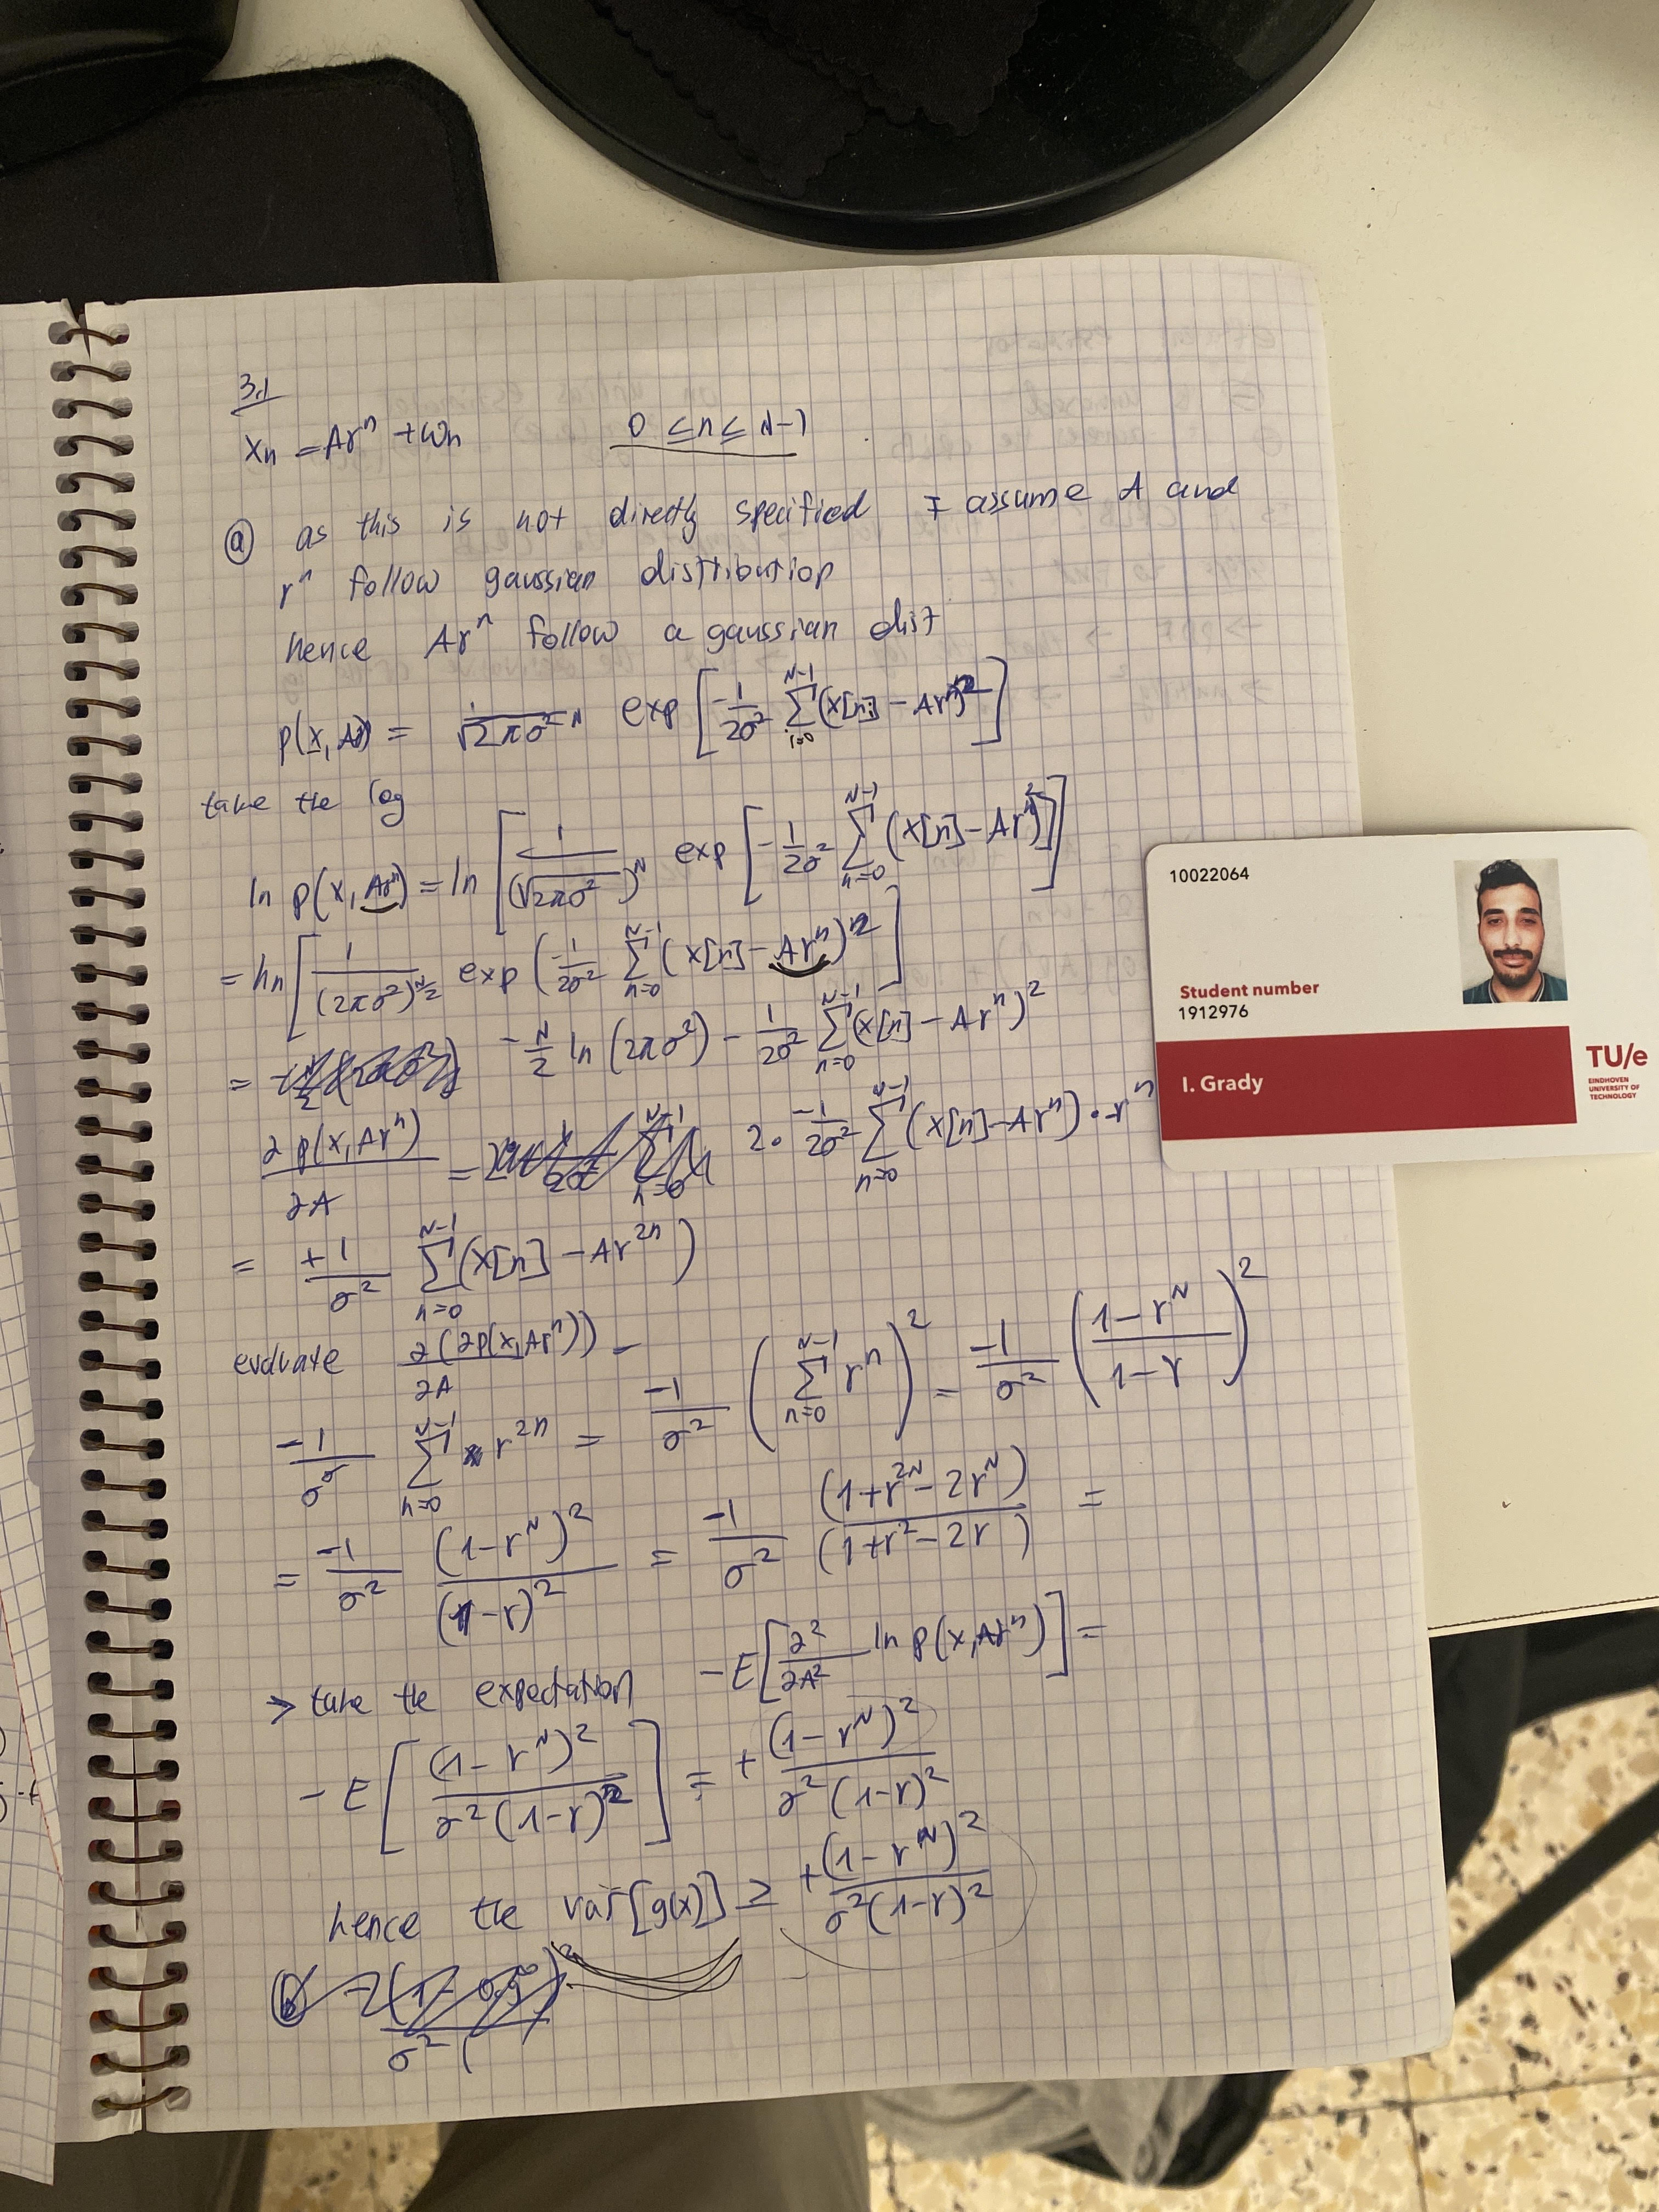 3.1
xn = Arⁿ + ωn    0 ≤ n ≤ N-1
(a) as this is not directly specified I assume A and
rⁿ follow gaussian distribution
hence Arⁿ follow a gaussian dist
p(x, Ar) = 1/√2πσ² ᴺ exp[-1/2σ² Σ_{i=0}^{N-1} (x[n] - Arⁿ)²]
take the log
ln p(x, Arⁿ) = ln [1/(√2πσ²)ᴺ exp[-1/2σ² Σ_{n=0}^{N-1} (x[n] - Arⁿ)²]]
= ln [1/(2πσ²)^{N/2} exp(-1/2σ² Σ_{n=0}^{N-1} (x[n] - Arⁿ)²]
= -N/2 ln (2πσ²) - 1/2σ² Σ_{n=0}^{N-1} (x[n] - Arⁿ)²
∂p(x, Arⁿ)/∂A = 2 · -1/2σ² Σ_{n=0}^{N-1} (x[n] - Arⁿ) · -rⁿ
= +1/σ² Σ_{n=0}^{N-1} (x[n] - Ar²ⁿ)
evaluate ∂(∂p(x, Arⁿ))/∂A =
-1/σ² Σ_{n=0}^{N-1} r²ⁿ = -1/σ² (Σ_{n=0}^{N-1} rⁿ)² = -1/σ² ((1-rᴺ)/(1-r))²
= -1/σ² (1-rᴺ)²/(1-r)² = -1/σ² (1+r²ᴺ-2rᴺ)/(1+r²-2r) =
> take the expectation -E[∂²/∂A² ln p(x, Arⁿ)] =
-E[(1-rᴺ)²/σ²(1-r)²] = +(1-rᴺ)²/σ²(1-r)²
hence the var[g(x)] ≥ +(1-rᴺ)²/σ²(1-r)²
10022064
Student number
1912976
I. Grady
TU/e
EINDHOVEN
UNIVERSITY OF
TECHNOLOGY